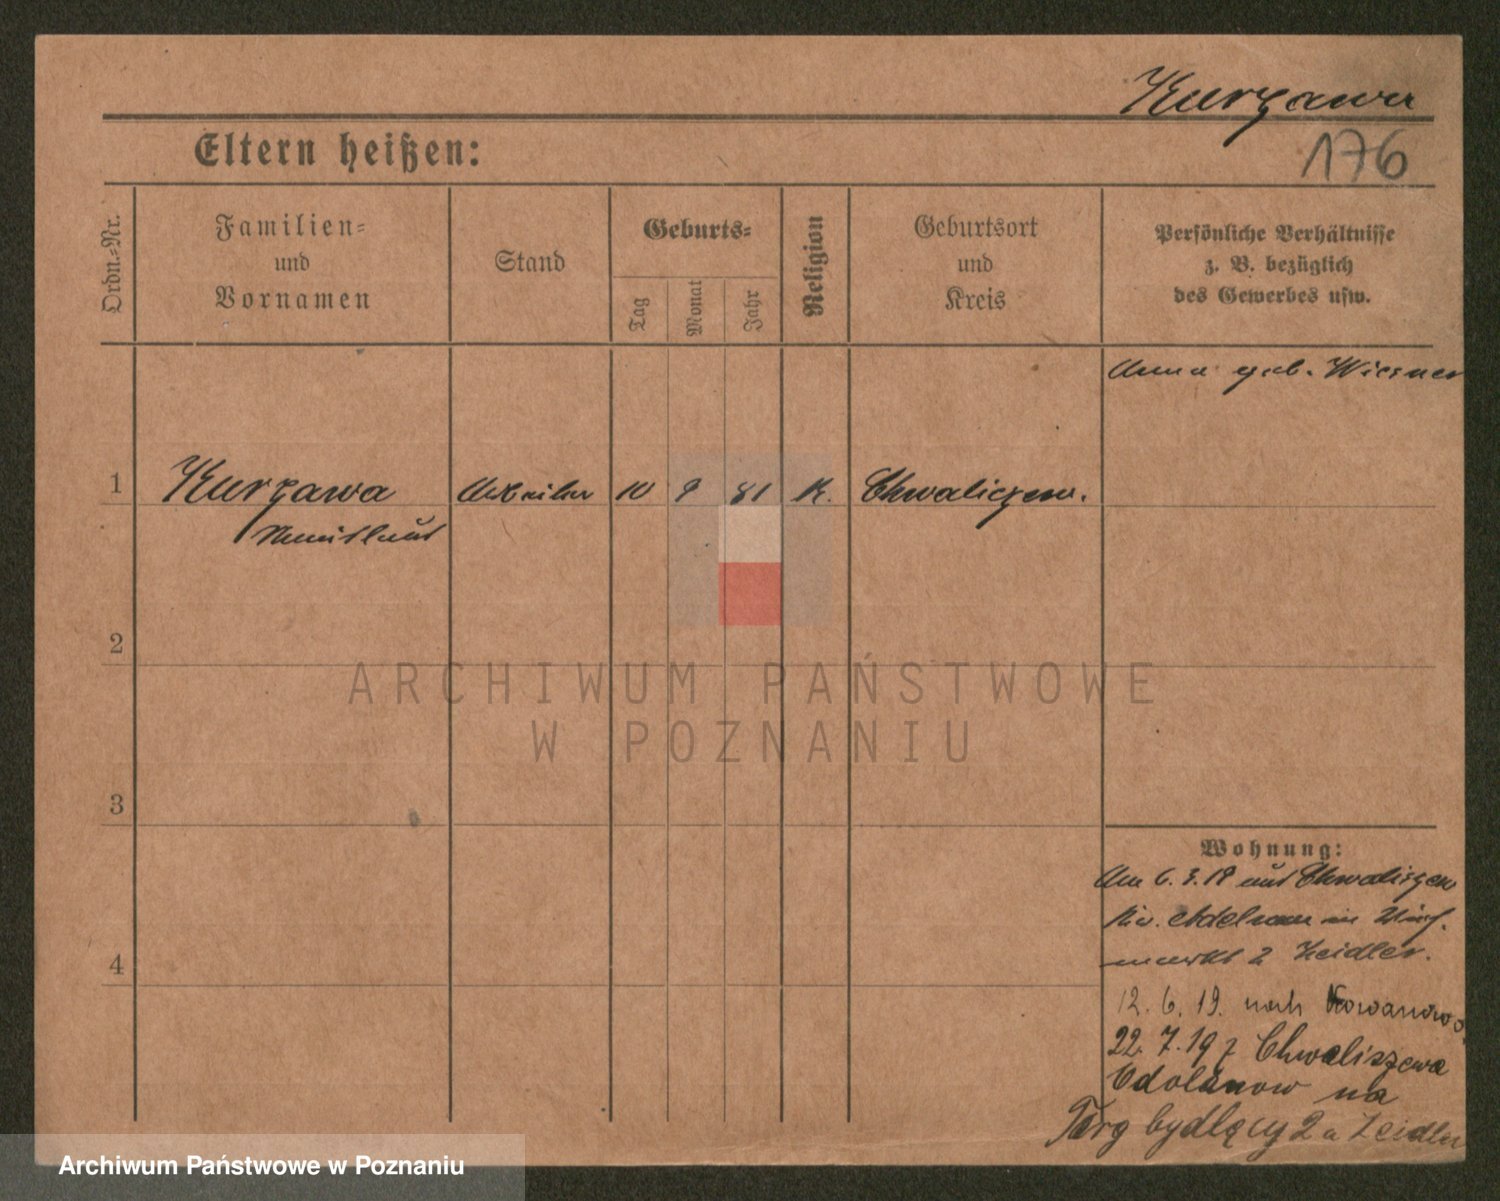 Kurzawa
176
Eltern heißen:
Ordn.-Nr.
Familien-
und
Vornamen
Stand
Geburts-
Tag
Monat
Jahr
Religion
Geburtsort
und
Kreis
Persönliche Verhältnisse
z. B. bezüglich
des Gewerbes usw.
Anna geb. Wiesner
1 Kurzawa Arbeiter 10 9 81 K. Chwaliczew.
2
3
4
Wohnung:
Am 6. 3. 18 aus Chwaliszew
Kr. Adelnau in
markt 2 Zeidler.
12. 6. 19. nach Kowanowo
22. 7. 19 z Chwaliszewa
Odolanow na
Targ bydlęcy 2 a Zeidler
ARCHIWUM PAŃSTWOWE
W POZNANIU
Archiwum Państwowe w Poznaniu